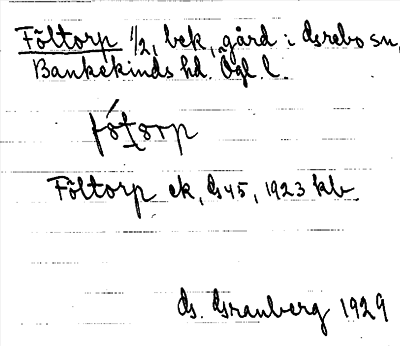 Föltorp 1/2, bek, gård i Grebo sn,
Bankekinds hd. Ögl. l.
fótorp
Föltorp ek, G 45, 1923 kb
G. Granberg 1929